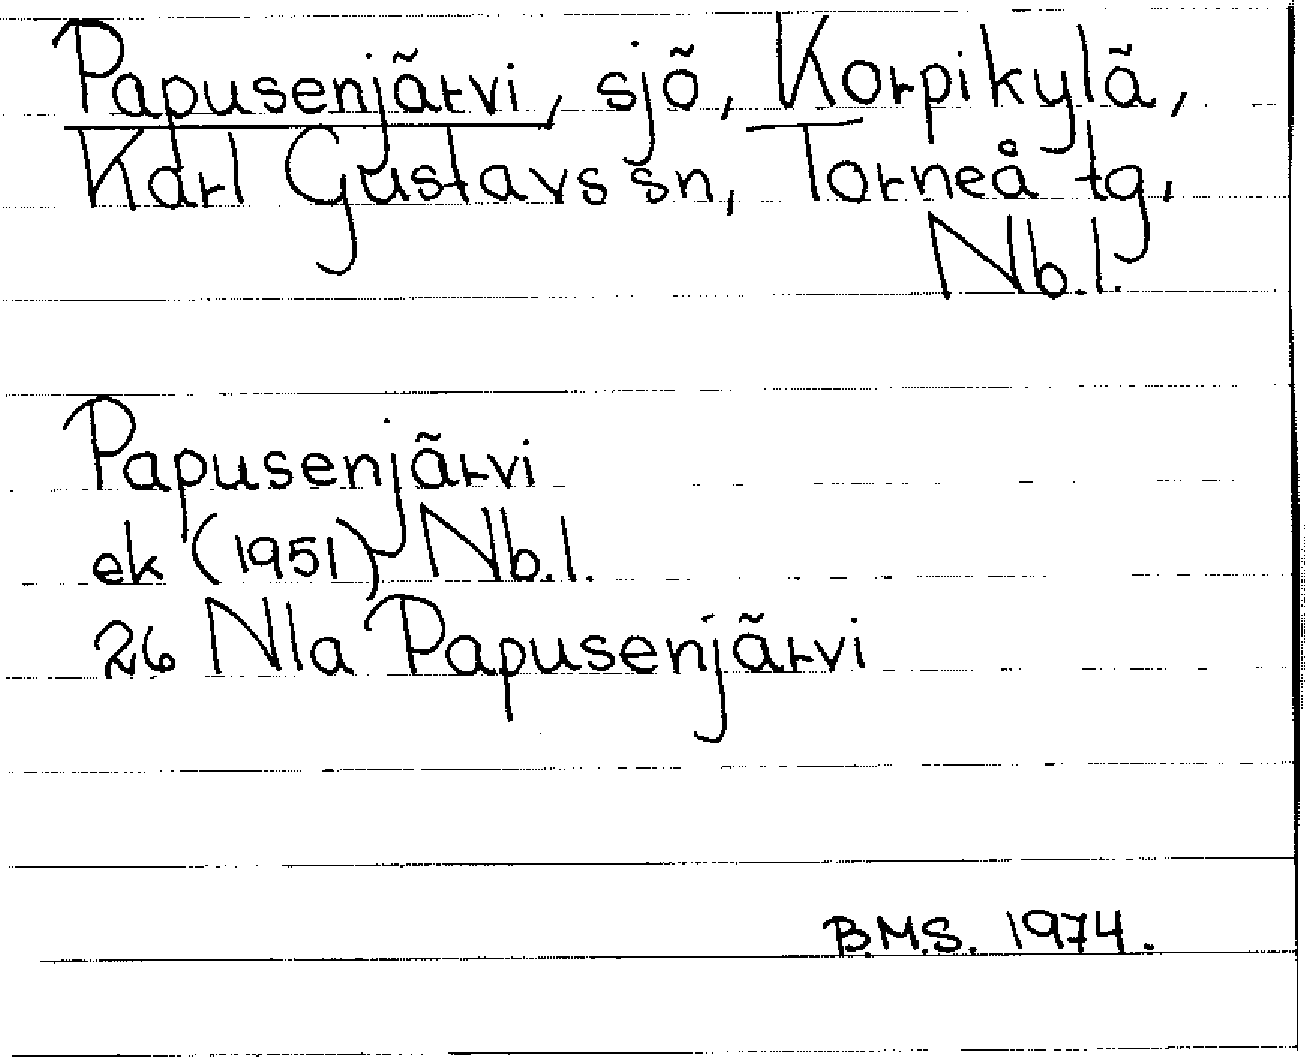 Papusenjärvi, sjö, Korpikylä,
Karl Gustavs sn, Torneå tg,
Nb.l.
Papusenjärvi
ek (1951) Nb.l.
26 Nla Papusenjärvi
B.M.S. 1974.